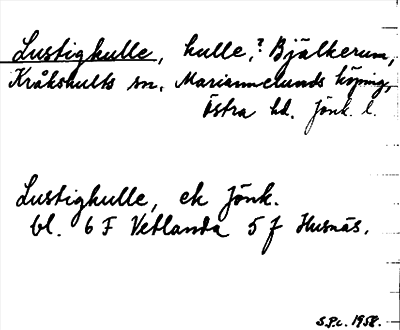 Lustigkulle, kulle,? Bjälkerum,
Kråkshults sn. Mariannelunds köping,
Östra hd. Jönk. l.
Lustigkulle, ek Jönk.
bl. 6 F Vetlanda 5 f Husnäs.
S.P.c. 1958.